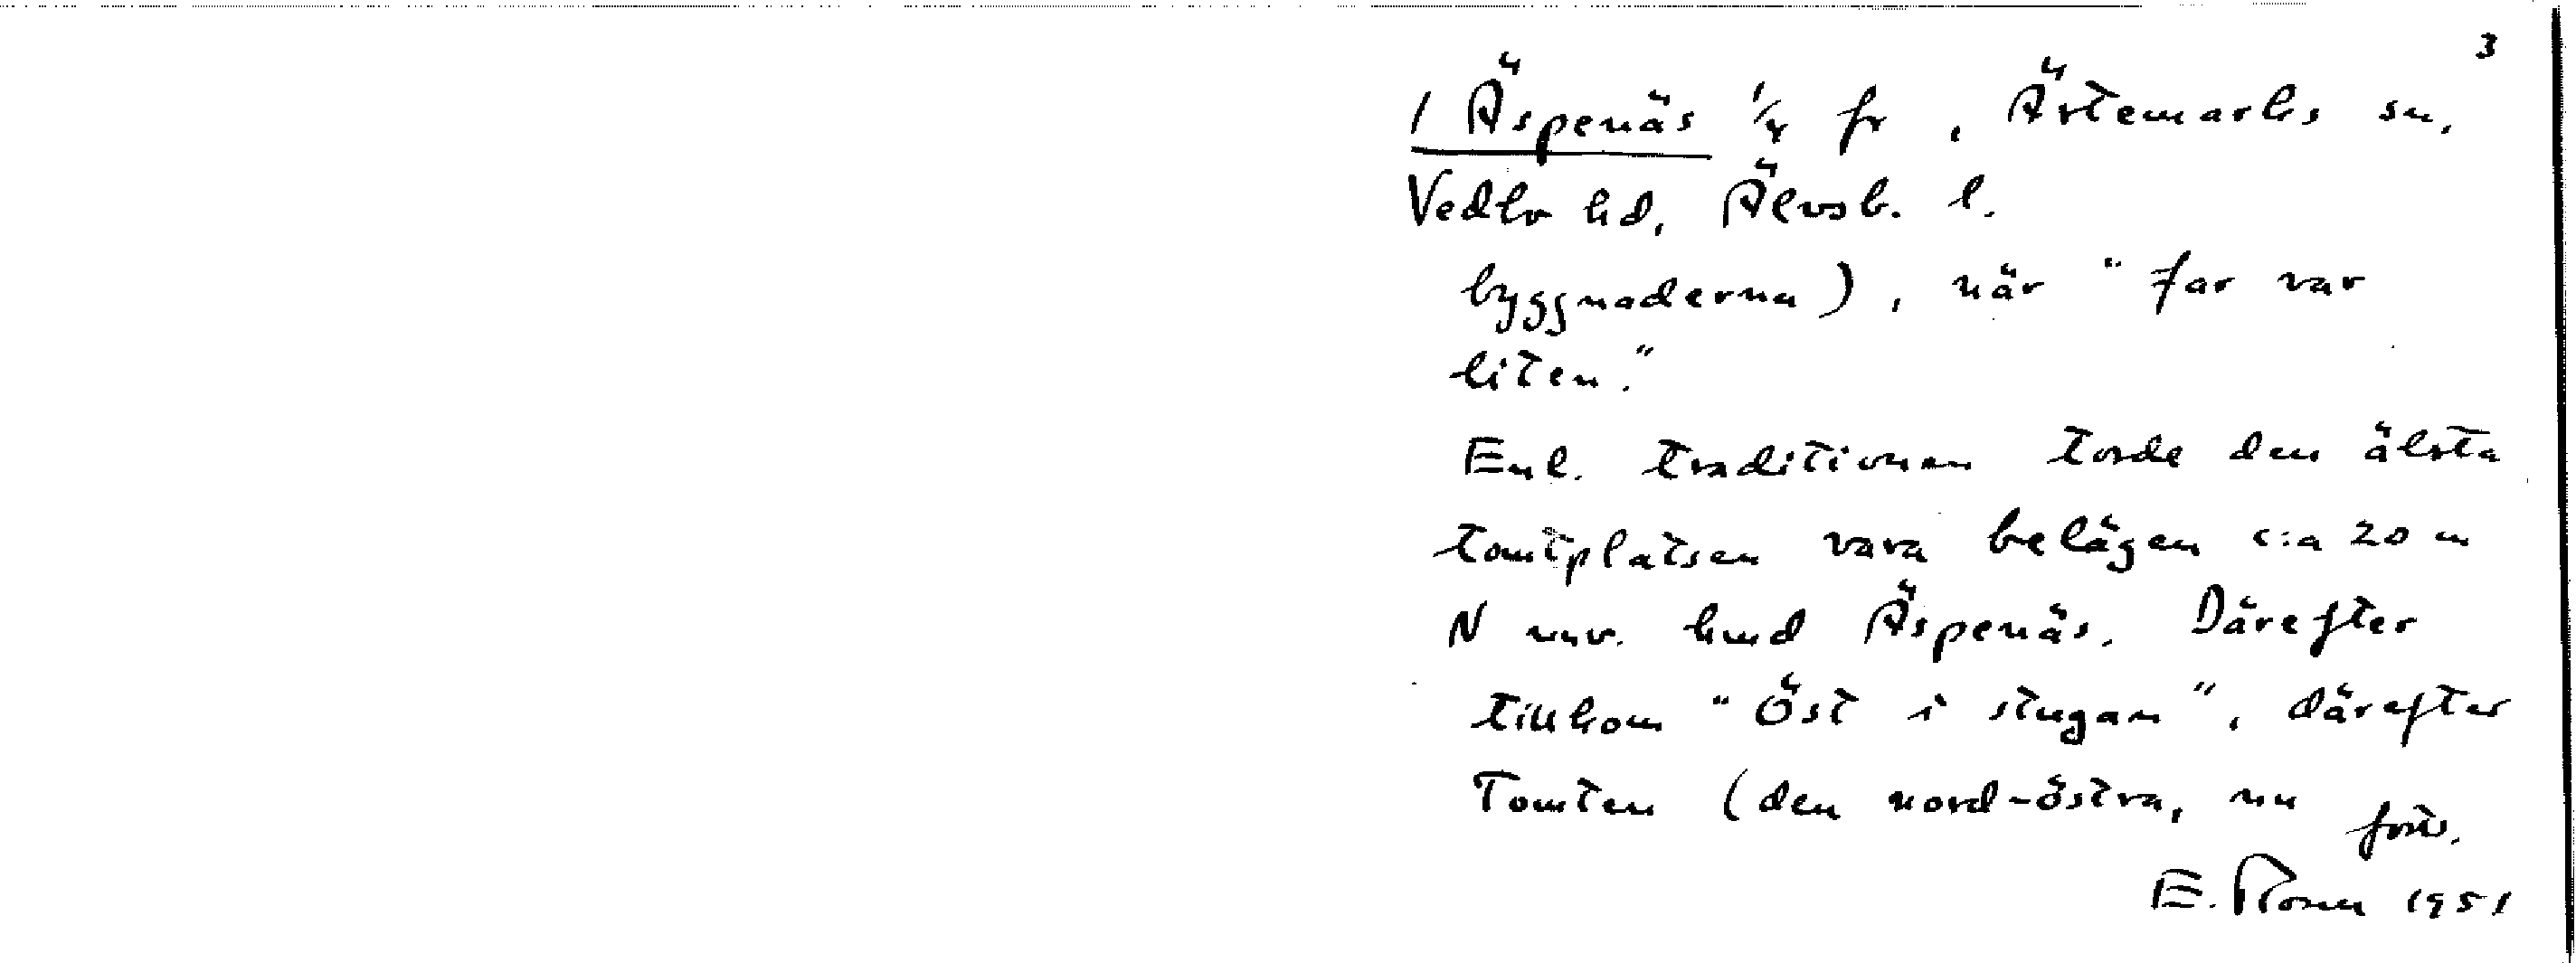 3
1 Äspenäs 1/4 fr, Ärtemarks sn,
Vedbo hd, Älvsb. l.
byggnaderna), när "far var
liten."
Enl. traditionen torde den älsta
tomtplatsen vara belägen c:a 20 m
N nuv. hmd Äspenäs. Därefter
tillkom "Öst i stugan", därefter
Tomten (den nord-östra, nu
forts.
E. 1951